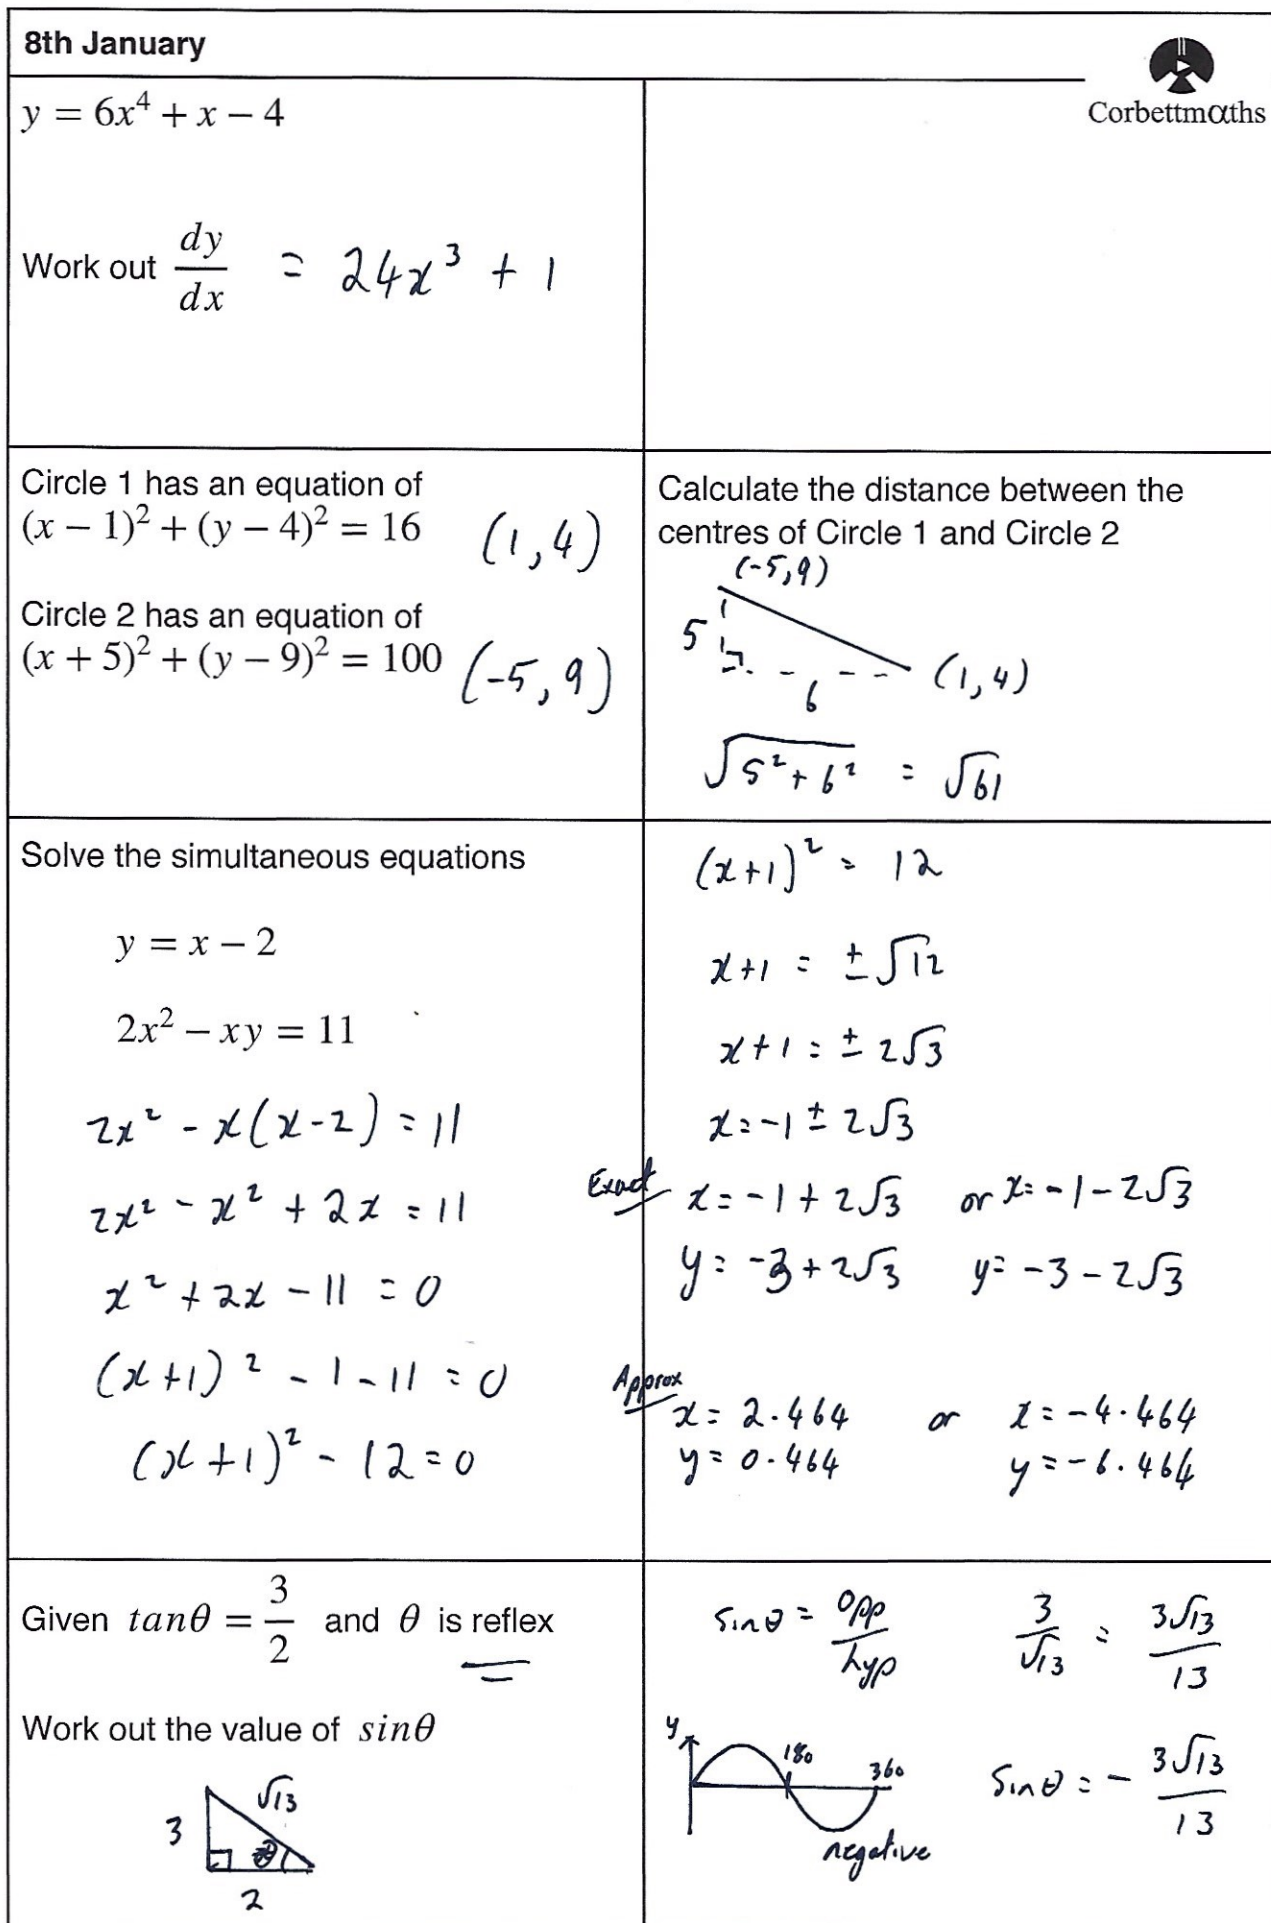 8th January
Corbettmαths
y = 6x⁴ + x − 4
Work out dy/dx = 24x³ + 1
Circle 1 has an equation of
(x − 1)² + (y − 4)² = 16 (1, 4)
Circle 2 has an equation of
(x + 5)² + (y − 9)² = 100 (-5, 9)
Calculate the distance between the
centres of Circle 1 and Circle 2
(-5, 9)
5
6
(1, 4)
√(5² + 6²) = √61
Solve the simultaneous equations
y = x − 2
2x² − xy = 11
2x² - x(x-2) = 11
2x² - x² + 2x = 11
x² + 2x - 11 = 0
(x+1)² - 1 - 11 = 0
(x+1)² - 12 = 0
(x+1)² = 12
x+1 = ±√12
x+1 = ±2√3
x = -1 ± 2√3
Exact x = -1 + 2√3 or x = -1 - 2√3
y = -3 + 2√3 y = -3 - 2√3
Approx
x = 2.464 or x = -4.464
y = 0.464 y = -6.464
Given tanθ = 3/2 and θ is reflex
Work out the value of sinθ
3
√13
θ
2
sinθ = opp/hyp 3/√13 = 3√13/13
y
180
360
negative
sinθ = - 3√13/13